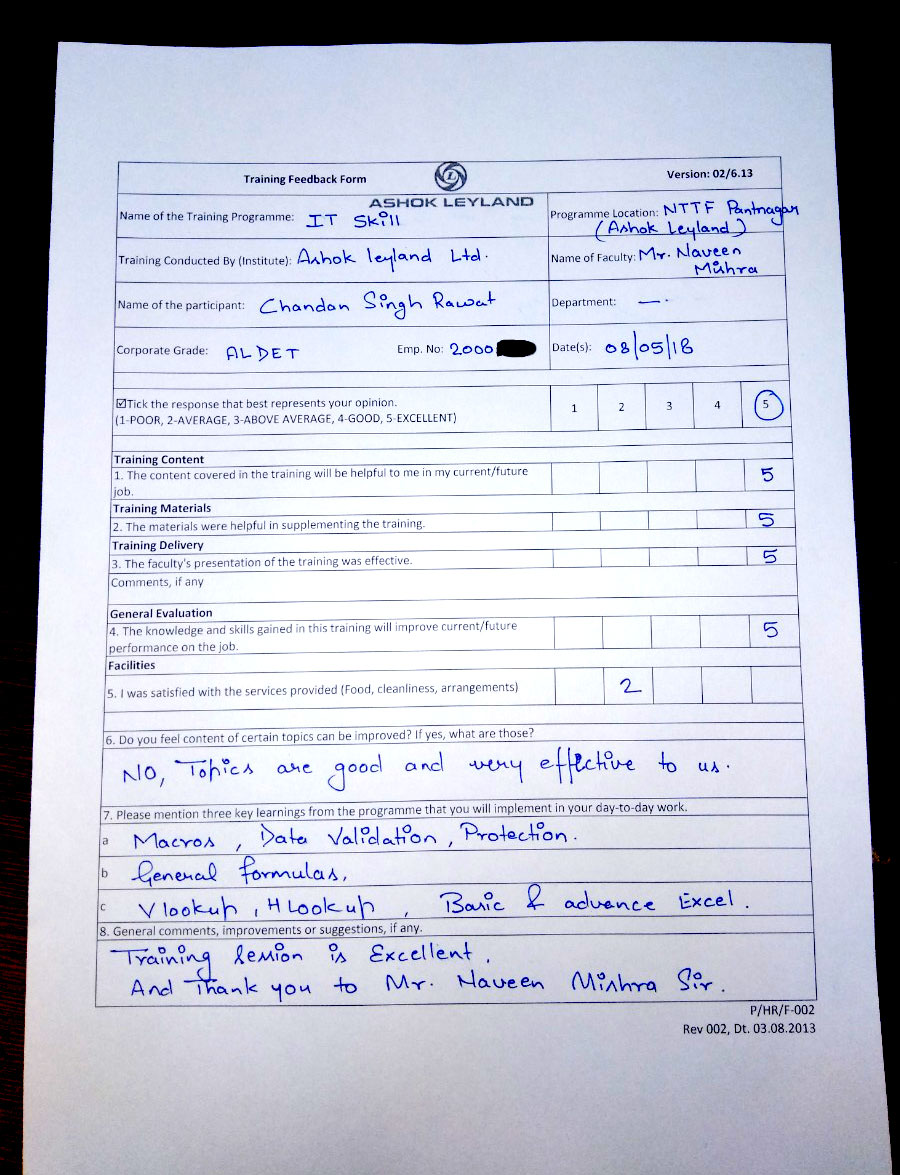 Training Feedback Form
L
Version: 02/6.13
ASHOK LEYLAND
Name of the Training Programme: IT Skill
Programme Location: NTTF Pantnagar
(Ashok Leyland)
Training Conducted By (Institute): Ashok leyland Ltd.
Name of Faculty: Mr. Naveen
Mishra
Name of the participant: Chandan Singh Rawat
Department: —.
Corporate Grade: ALDET
Emp. No: 2000
Date(s): 08/05/18
☑Tick the response that best represents your opinion.
(1-POOR, 2-AVERAGE, 3-ABOVE AVERAGE, 4-GOOD, 5-EXCELLENT)
1 2 3 4 5
Training Content
1. The content covered in the training will be helpful to me in my current/future
job.
5
Training Materials
2. The materials were helpful in supplementing the training. 5
Training Delivery
3. The faculty's presentation of the training was effective. 5
Comments, if any
General Evaluation
4. The knowledge and skills gained in this training will improve current/future
performance on the job.
5
Facilities
5. I was satisfied with the services provided (Food, cleanliness, arrangements) 2
6. Do you feel content of certain topics can be improved? If yes, what are those?
NO, Topics are good and very effective to us.
7. Please mention three key learnings from the programme that you will implement in your day-to-day work.
a Macros, Data Validation, Protection.
b General formulas,
c Vlookup, HLookup, Basic & advance Excel.
8. General comments, improvements or suggestions, if any.
Training Session is Excellent.
And Thank you to Mr. Naveen Mishra Sir.
P/HR/F-002
Rev 002, Dt. 03.08.2013